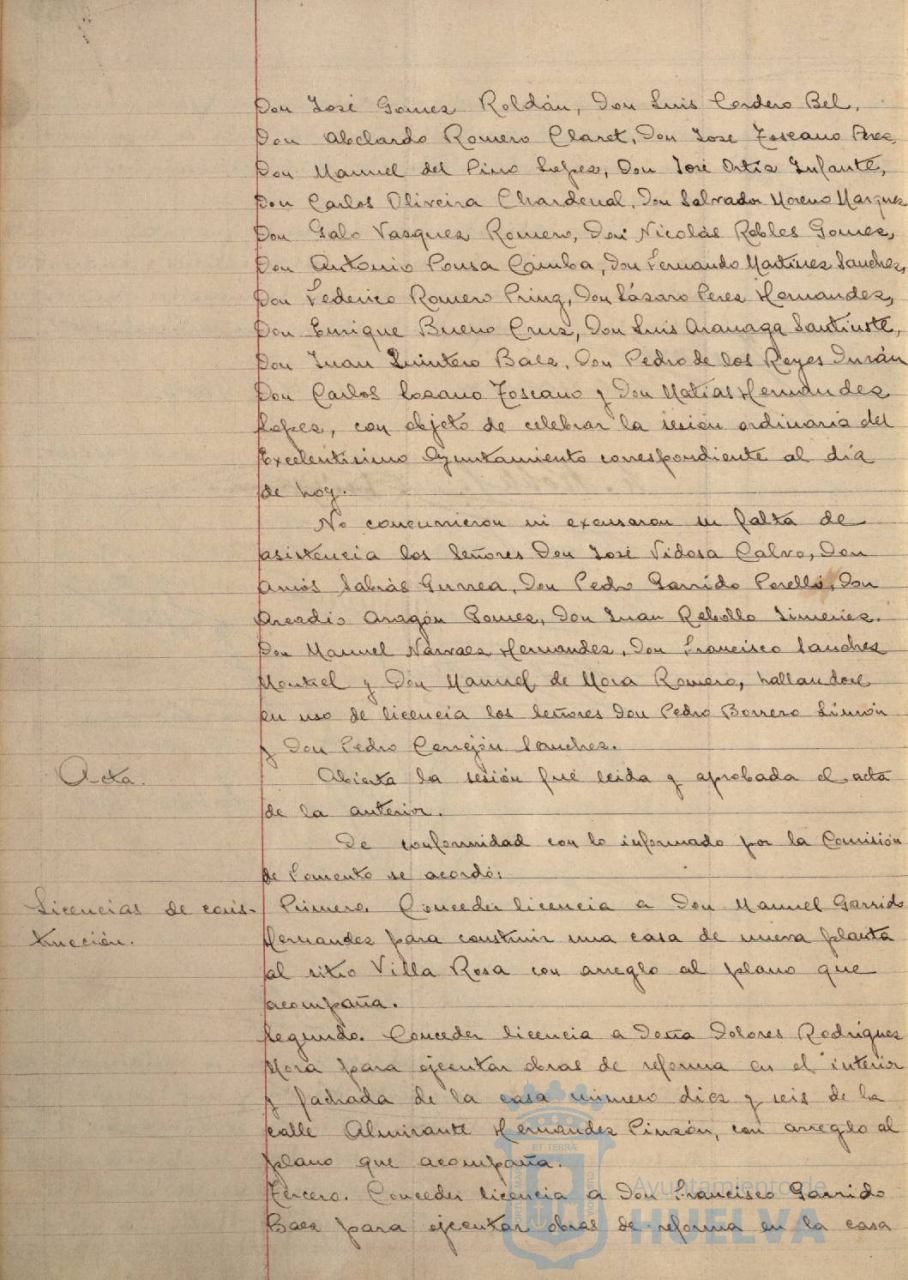 Don José Gomez Roldán, Don Luis Cordero Bel,
Don Abelardo Romero Claret, Don Jose Toscano Perez,
Don Manuel del Pino Lopez, Don José Ortiz Infante,
Don Carlos Oliveira Chardenal, Don Salvador Moreno Marquez
Don Galo Vazquez Romero, Don Nicolás Robles Gomez,
Don Antonio Pousa Camba, Don Fernando Martinez Sanchez,
Don Federico Romero Pring, Don Lázaro Perez Hernandez,
Don Enrique Bueno Cruz, Don Luis Aranaga Santiuste,
Don Juan Quintero Baez, Don Pedro de los Reyes Durán
Don Carlos Lozano Toscano y Don Matias Hernandez
Lopez, con objeto de celebrar la sesión ordinaria del
Excelentisimo Ayuntamiento correspondiente al día
de hoy.
No concurrieron ni excusaron su falta de
asistencia los Señores Don José Vidosa Calvo, Don
Amós Sabrás Gurrea, Don Pedro Garrido Perelló, Don
Arcadio Aragón Gomez, Don Juan Rebollo Jimenez.
Don Manuel Narvaez Hernandez, Don Francisco Sanchez
Montiel y Don Manuel de Mora Romero, hallandose
en uso de licencia los Señores Don Pedro Borrero Limón
y Don Pedro Cerrejón Sanchez.
Acta.
Abierta la sesión fué leida y aprobada el acta
de la anterior.
De conformidad con lo informado por la Comisión
de Fomento se acordó:
Licencias de cons-
trucción.
Primero. Conceder licencia a Don Manuel Garrido
Hernandez para construir una casa de nueva planta
al sitio Villa Rosa con arreglo al plano que
acompaña.
Segundo. Conceder licencia a Doña Dolores Rodriguez
Mora para ejecutar obras de reforma en el interior
y fachada de la casa número diez y seis de la
calle Almirante Hernandez Pinzón, con arreglo al
plano que acompaña.
Tercero. Conceder licencia a Don Francisco Garrido
Baez para ejecutar obras de reforma en la casa
Ayuntamiento de
HUELVA